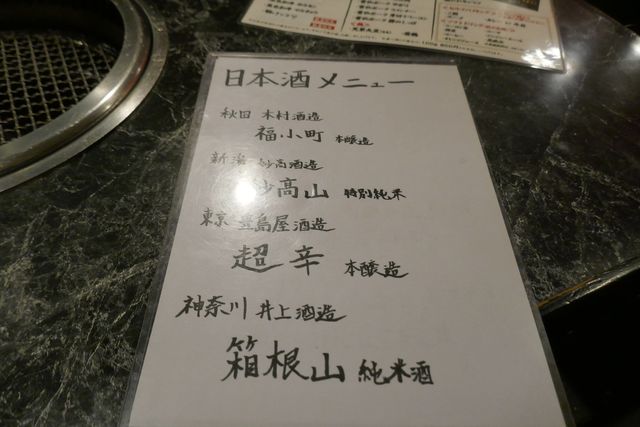 日本酒メニュー
秋田 木村酒造
福小町 本醸造
新潟 妙高酒造
妙高山 特別純米
東京 豊島屋酒造
超辛 本醸造
神奈川 井上酒造
箱根山 純米酒